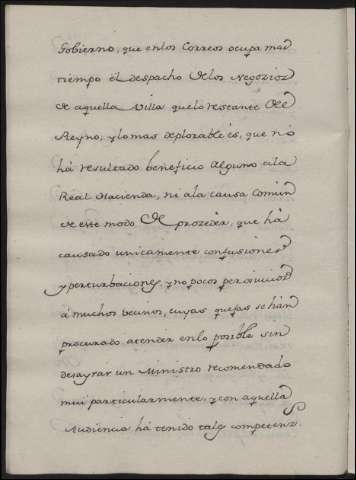 Gobierno, que en los Correos ocupa mas
tiempo el despacho de los Negozios
de aquella Villa que lo restante del
Reyno; y lo mas deplorable és, que nó
há resultado beneficio alguno ála
Real Hacienda, ni ala causa Comun
de este modo de prozeder, que há
causado unicamente confusiones
y perturbaciones, y no pocos perjuicios
á muchos vecinos, cuyas quejas se hán
procurado atender en lo posible sin
desayrar un Ministro recomendado
mui particularmente, y con aquella
Audiencia há tenido tales competens.